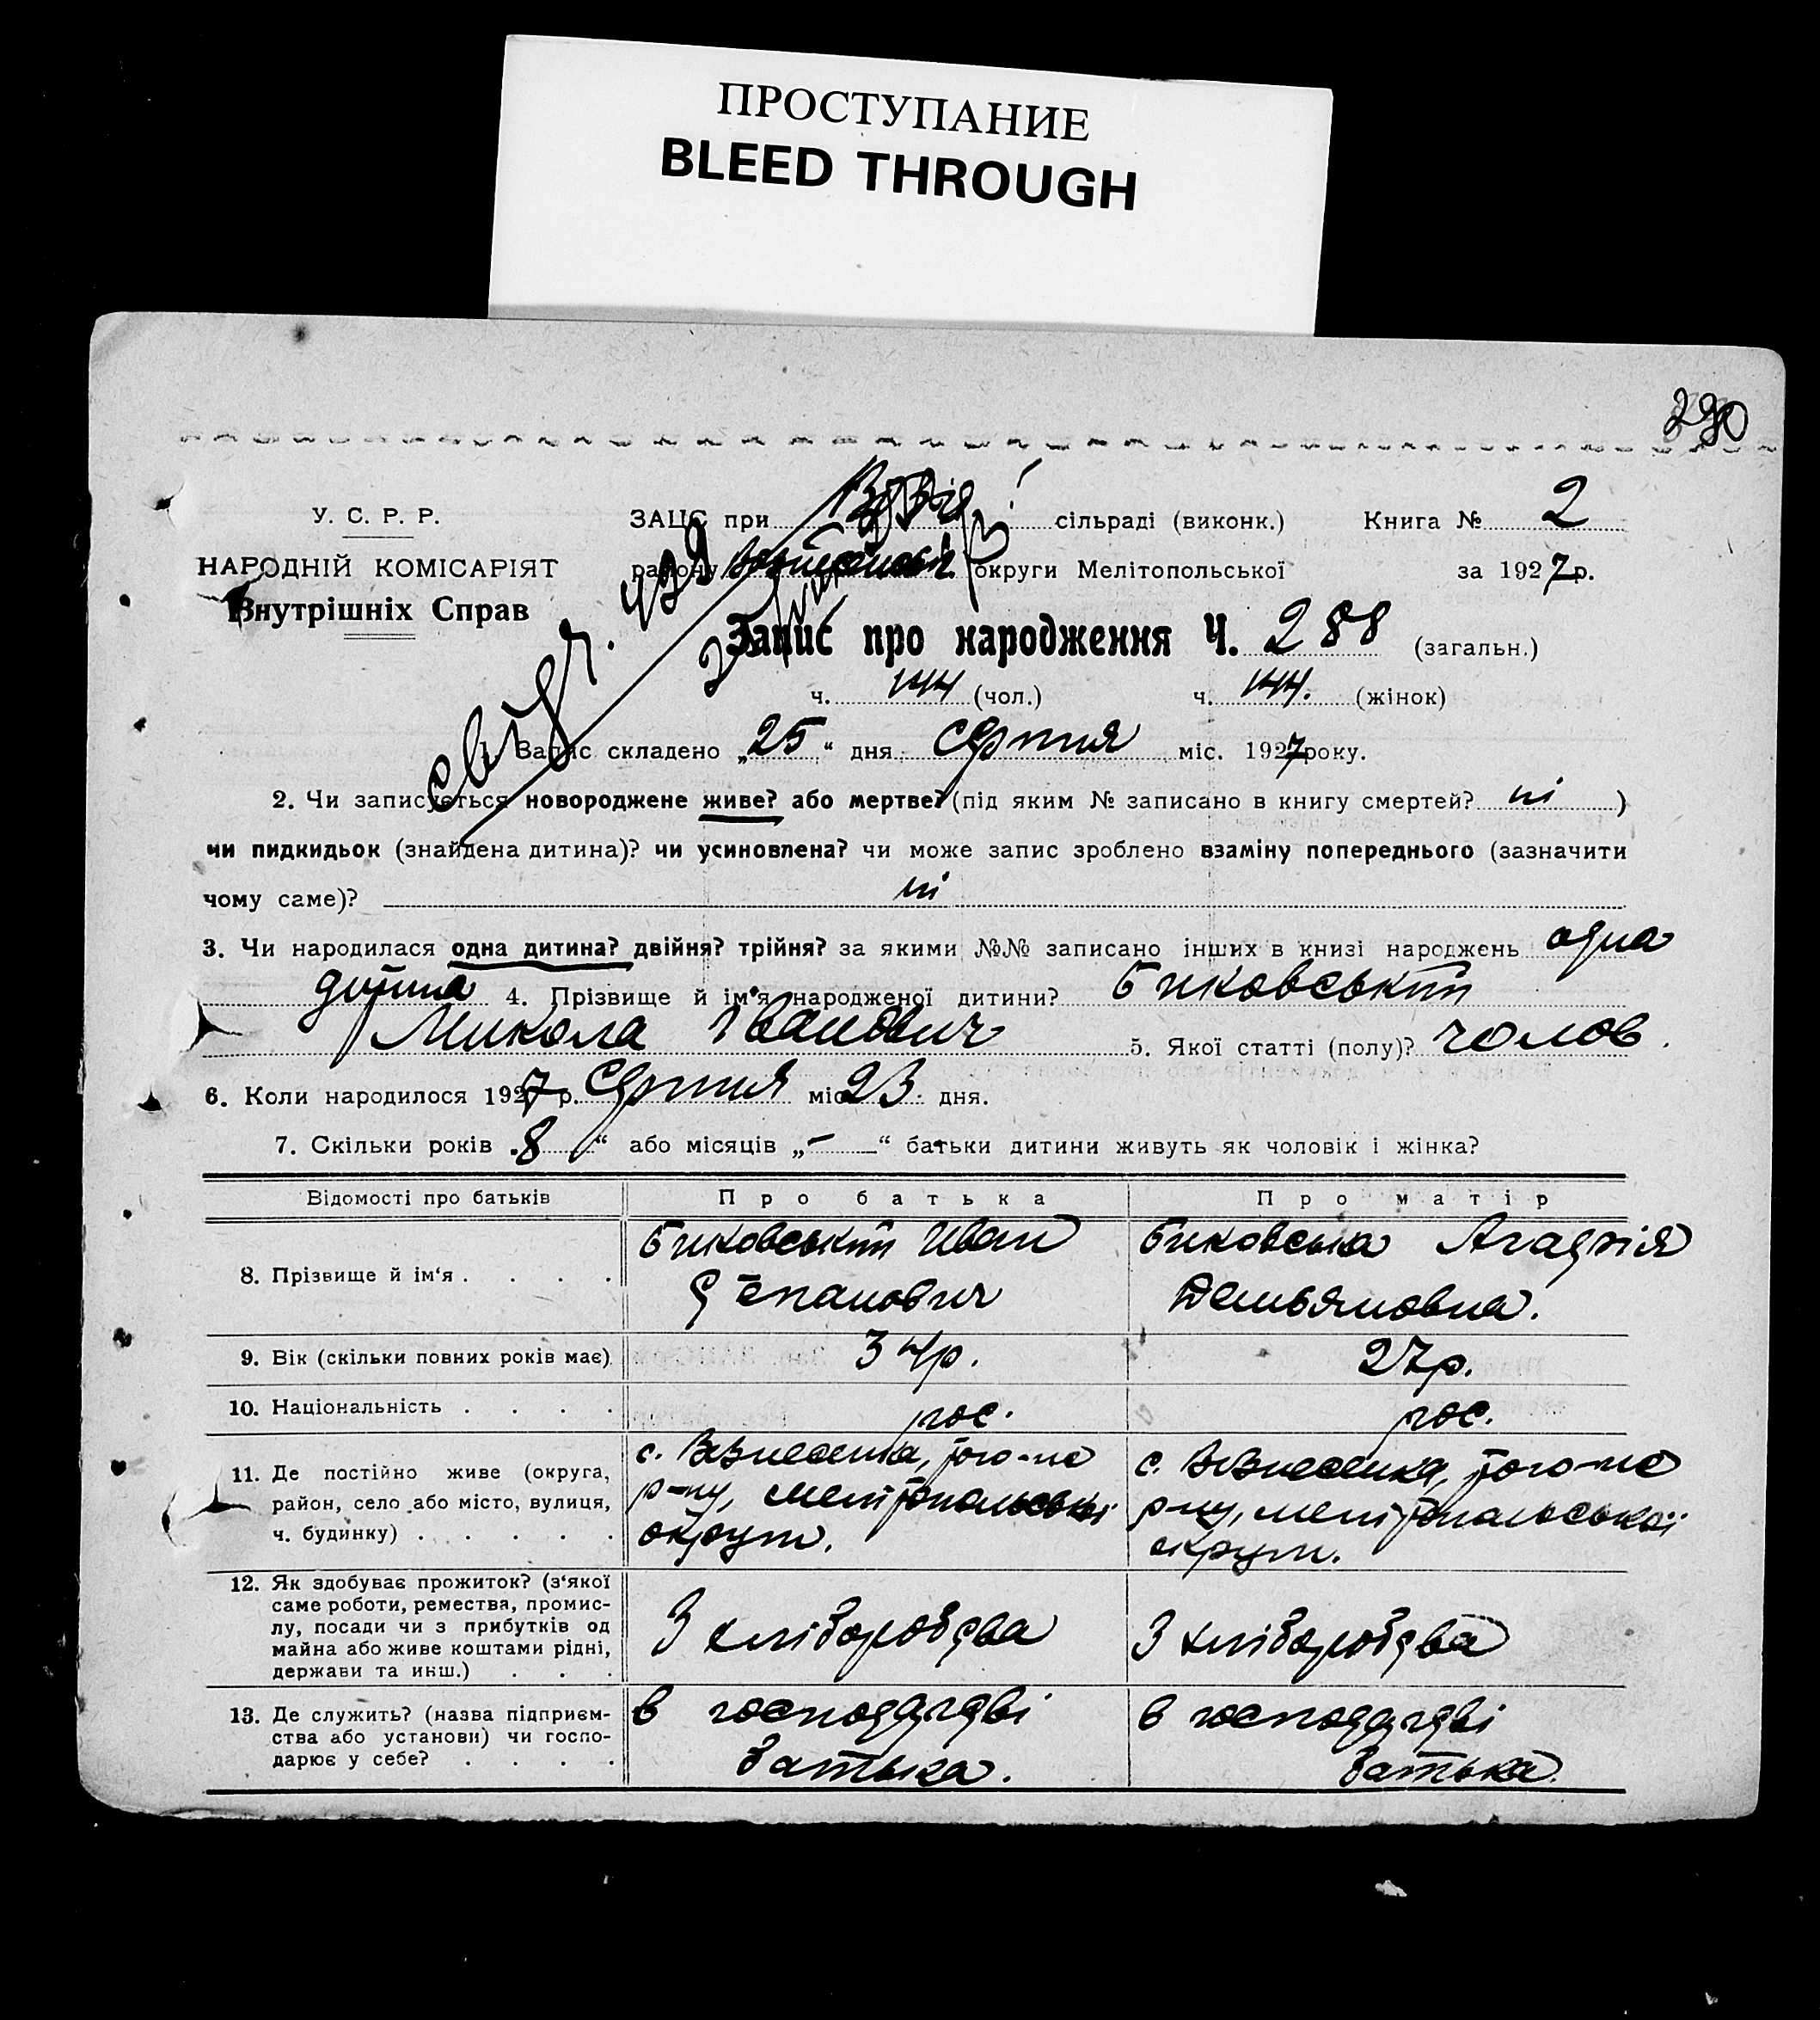 ПРОСТУПАНИЕ
BLEED THROUGH
290
У. С. Р. Р.
НАРОДНІЙ КОМІСАРІЯТ
Внутрішніх Справ
ЗАЦС при сільраді (виконк.) Книга № 2
району округи Мелітопольської за 1927 р.
Запис про народження Ч. 288 (загальн.)
ч. 144 (чол.) ч. 144. (жінок)
1. Запис складено „25“ дня Серпня міс. 1927 року.
2. Чи записується новороджене живе? або мертве? (під яким № записано в книгу смертей? ні )
чи пидкидьок (знайдена дитина)? чи усиновлена? чи може запис зроблено взаміну попереднього (зазначити
чому саме)? ні
3. Чи народилася одна дитина? двійня? трійня? за якими №№ записано інших в книзі народжень одна
дитина 4. Прізвище й ім'я народженої дитини? Биковський
Микола Іванович 5. Якої статті (полу)? чолов.
6. Коли народилося 1927 р. Серпня міс. 23 дня.
7. Скільки років „8“ або місяців „—“ батьки дитини живуть як чоловік і жінка?
Відомості про батьків Про батька Про матір
8. Прізвище й ім'я . . . . Биковський Иван Степанович Биковська Агафія Демьяновна.
9. Вік (скільки повних років має) 34 р. 27 р.
10. Національність . . . . рос. рос.
11. Де постійно живе (округа, с. Вознесенка, того-же с. Вознесенка, того-же
район, село або місто, вулиця, р-ну, Мелітопольської р-ну, Мелітопольської
ч. будинку) . . . . . округи. округи.
12. Як здобуває прожиток? (з'якої
саме роботи, ремества, промис-
лу, посади чи з прибутків од З хліборобства З хліборобства
майна або живе коштами рідні,
держави та инш.) . . .
13. Де служить? (назва підприєм- в господарстві в господарстві
ства або установи) чи госпо-
дарює у себе? . . . . батька. батька.